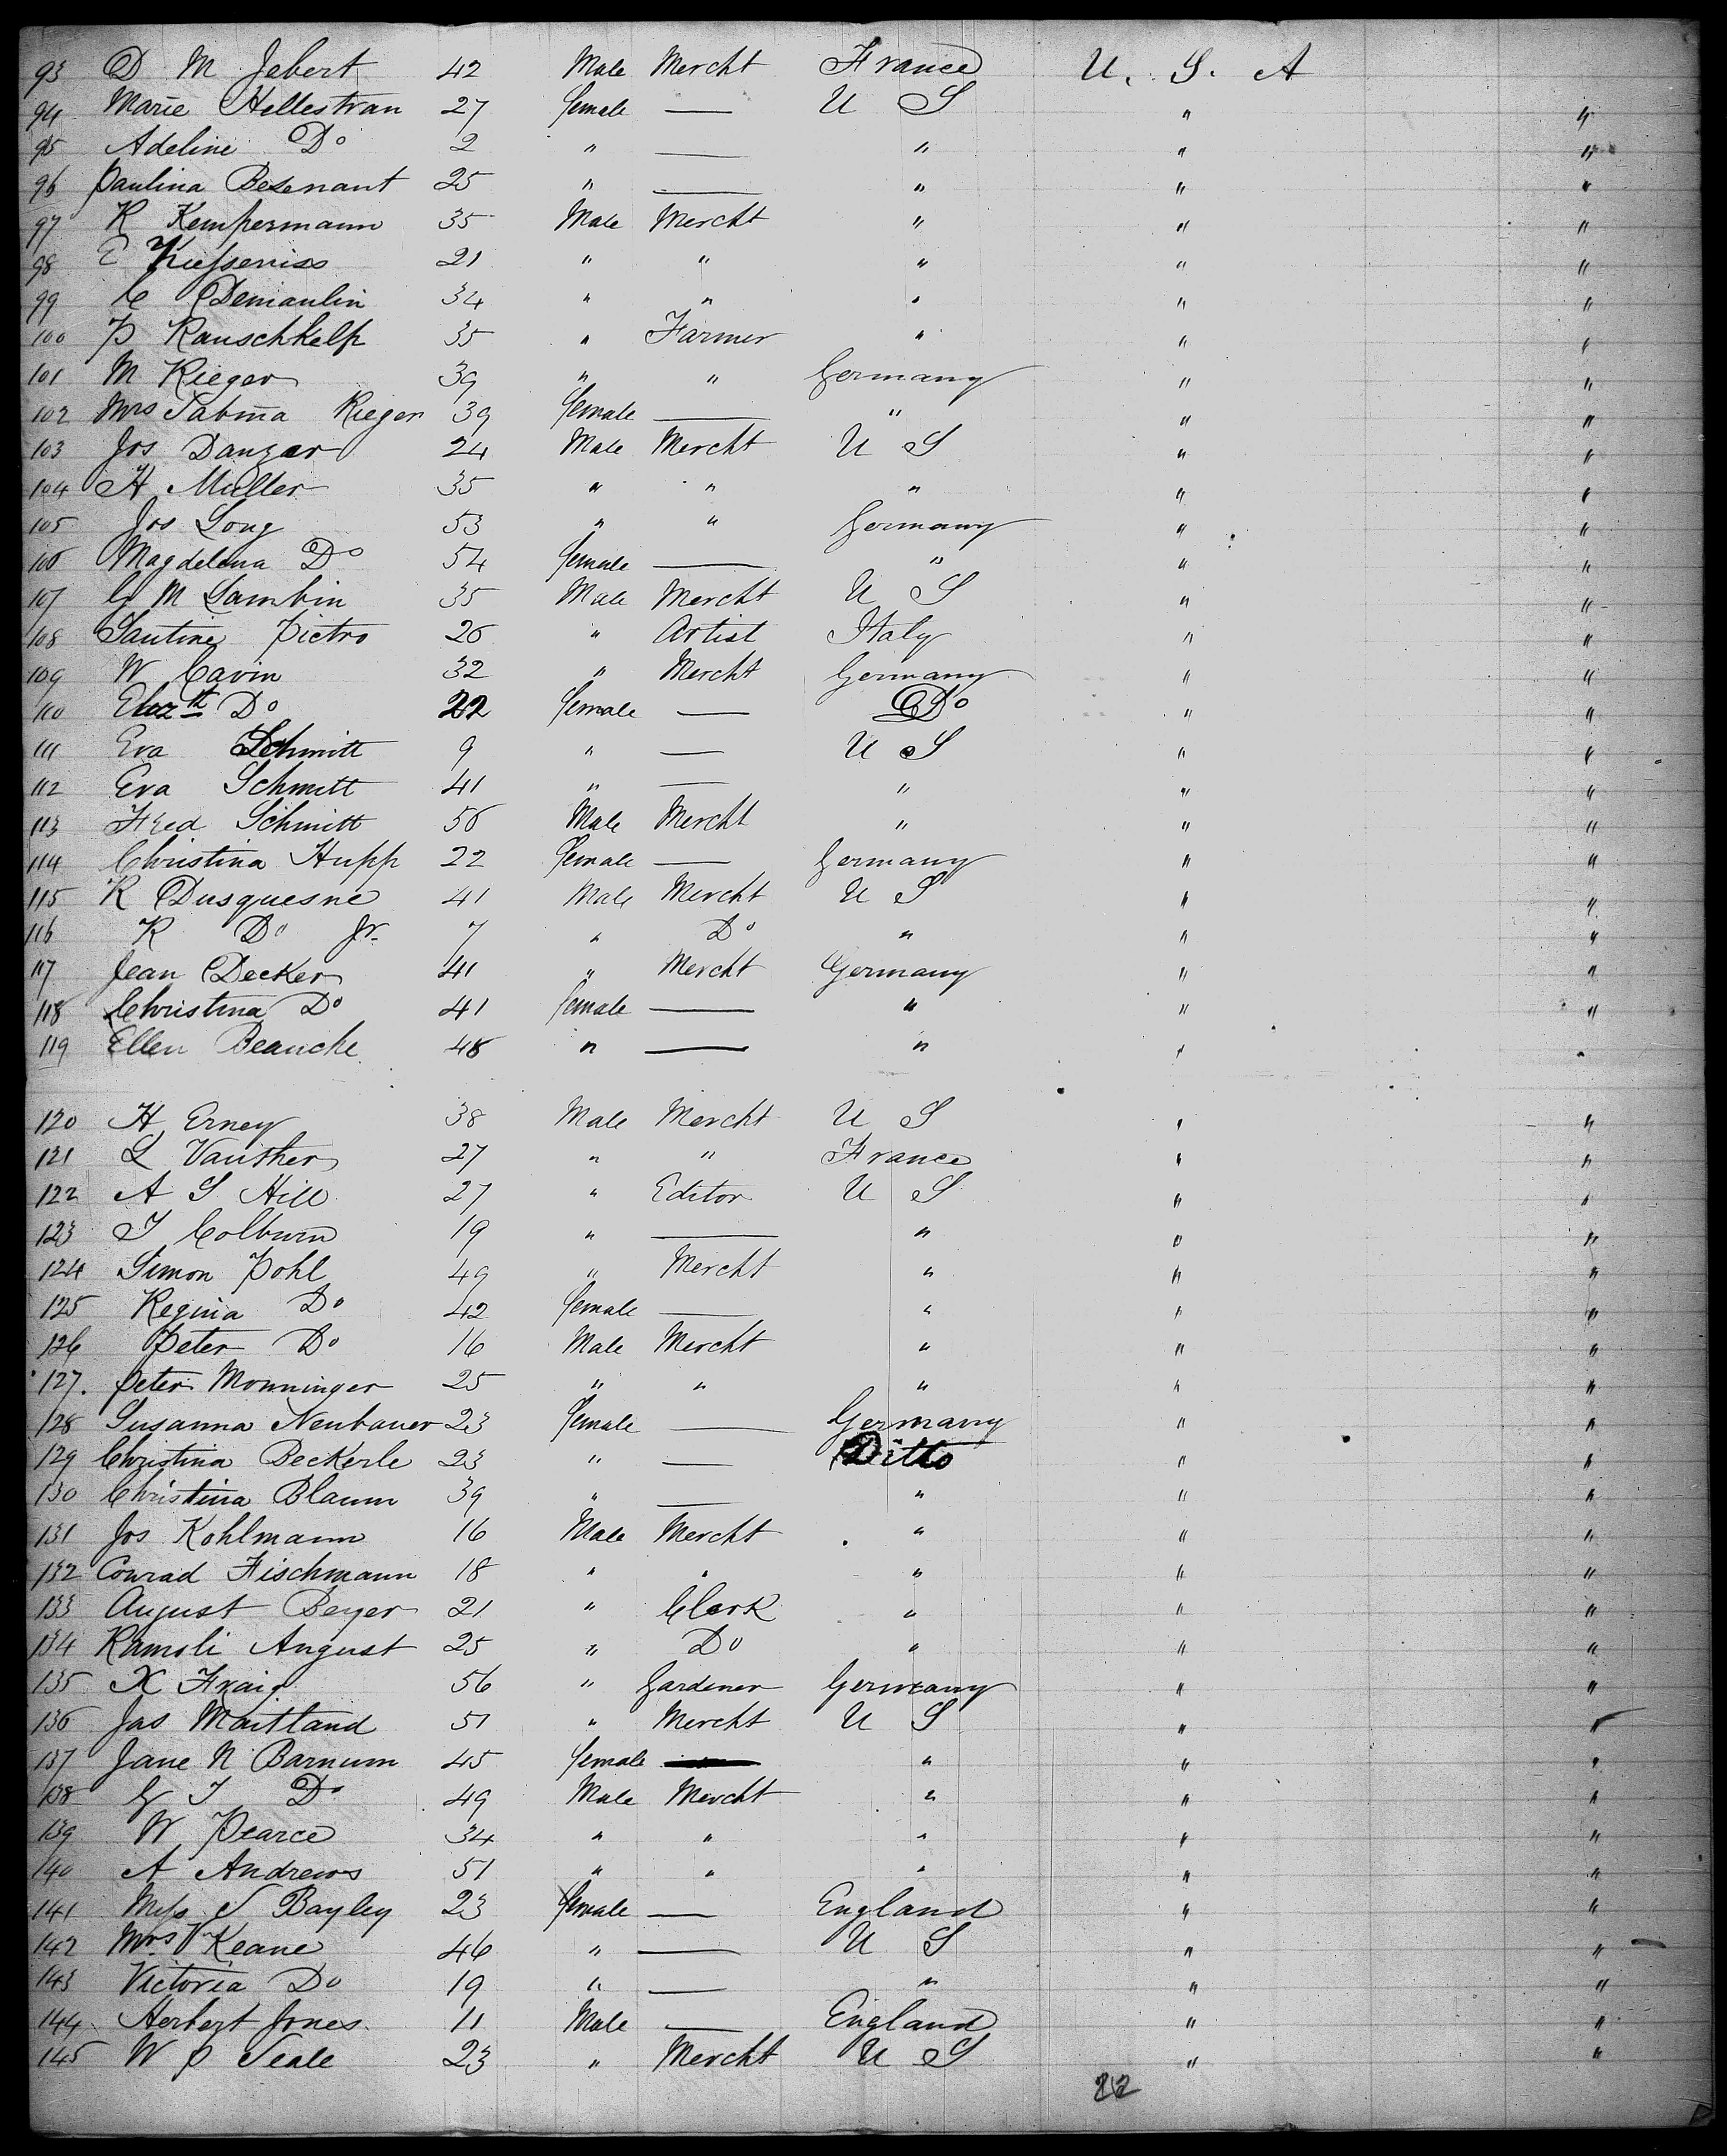 93 D M Jebert 42 Male Mercht France U. S. A
94 Marie Hellestran 27 female — U S " "
95 Adeline Do 2 " — " " "
96 Paulina Besenant 25 " — " " "
97 K Kempermann 35 Male Mercht " " "
98 E 21 " " " " "
99 C Demaulin 34 " " " " "
100 P Rauschkelp 35 " Farmer " " "
101 M Rieger 39 " " Germany " "
102 Mrs Sabina Rieger 39 female — " " "
103 Jos Danzer 24 Male Mercht U S " "
104 H Muller 35 " " " " "
105 Jos Long 53 " " Germany " "
106 Magdelena Do 54 female — " " "
107 G M Lambin 35 Male Mercht U S " "
108 Santine Pietro 26 " Artist Italy " "
109 W Cavin 32 " Mercht Germany " "
110 Elizth Do 22 female — Do " "
111 Eva Schmitt 9 " — U S " "
112 Eva Schmitt 41 " — " " "
113 Fred Schmitt 56 Male Mercht " " "
114 Christina Hupp 22 female — Germany " "
115 R Dusquesne 41 Male Mercht U S " "
116 R Do Jr. 7 " Do " " "
117 Jean Decker 41 " Mercht Germany " "
118 Christina Do 41 female — " " "
119 Ellen Beauche 48 " — " " "
120 H Erney 38 Male Mercht U S " "
121 L Vauther 27 " " France " "
122 A S Hill 27 " Editor U S " "
123 J Colburn 19 " — " " "
124 Simon Pohl 49 " Mercht " " "
125 Regina Do 42 female — " " "
126 Peter Do 16 Male Mercht " " "
127. Peter Monninger 25 " " " " "
128 Susanna Neubauer 23 female — Germany " "
129 Christina Beckerle 23 " — Ditto " "
130 Christina Blaum 39 " — " " "
131 Jos Kohlmann 16 Male Mercht " " "
132 Conrad Fischmann 18 " " " " "
133 August Beyer 21 " Clerk " " "
134 Ramoli August 25 " Do " " "
135 X Fraig 56 " Gardener Germany " "
136 Jas Maitland 51 " Mercht U S " "
137 Jane N Barnum 45 female — " " "
138 G J Do 49 Male Mercht " " "
139 W Pearce 34 " " " " "
140 A Andrews 51 " " " " "
141 Miss S Bayley 23 female — England " "
142 Mrs Keane 46 " — U S " "
143 Victoria Do 19 " — " " "
144 Herbert Jones 11 Male — England " "
145 W P Seale 23 " Mercht U S " "